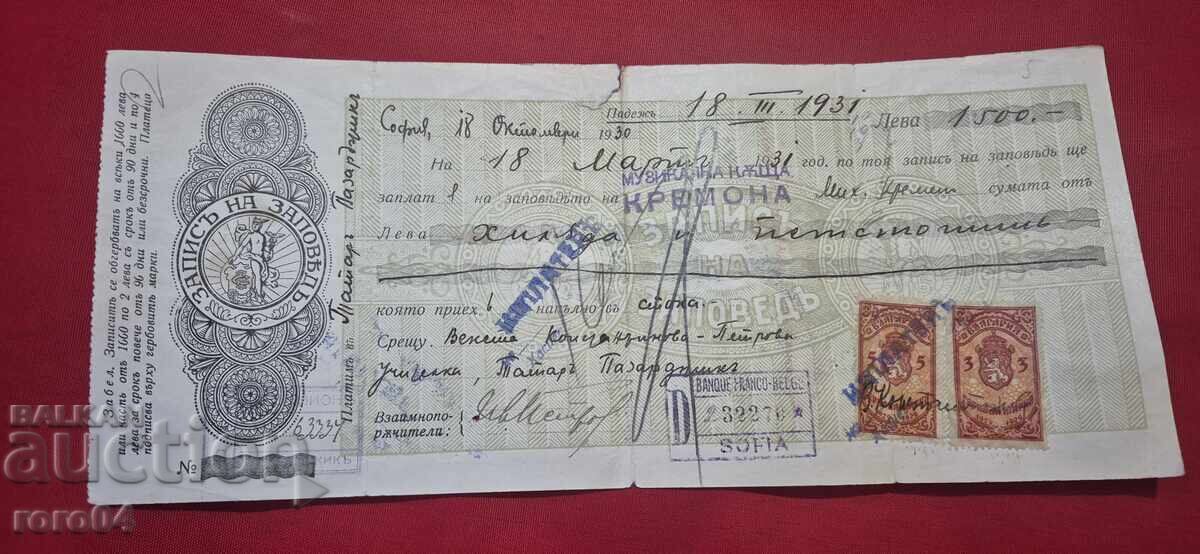 Забел. Записитѣ се обгербватъ на всѣки 1660 лева
или часть отъ 1660 по 2 лева съ срокъ отъ 90 дни и по 4
лева за срокъ повече отъ 96 дни или безсрочни. Платеца
подписва върху гербовитѣ марки.
ЗАПИСЪ НА ЗАПОВѢДЪ
№
63334
Платимъ въ Татаръ Пазарджикъ
София, 18 Октомври 1930
Падежъ 18 III. 1931
Лева 1500.-
На 18 Мартъ 1931 год. по тоя записъ на заповѣдь ще
заплатя на заповѣдьта на
МУЗИКАЛНА КѪЩА
КРЕМОНА
Мих. Кремен сумата отъ
Лева Хиляда и петстотинъ
която приехъ напълно въ стока.
Срещу Венета Константинова-Петрова
учителка, Татаръ Пазарджикъ
Взаимнопо-
рѫчители:
ИЗПЛАТЕНЪ
BANQUE FRANCO-BELGE
D
232270
SOFIA
БЪЛГАРИЯ
5 5
БЪЛГАРИЯ
3 3
ЗАПИСЪ
НА
ЗАПОВЕДЬ
5
БАЛКАН
auction
roro04